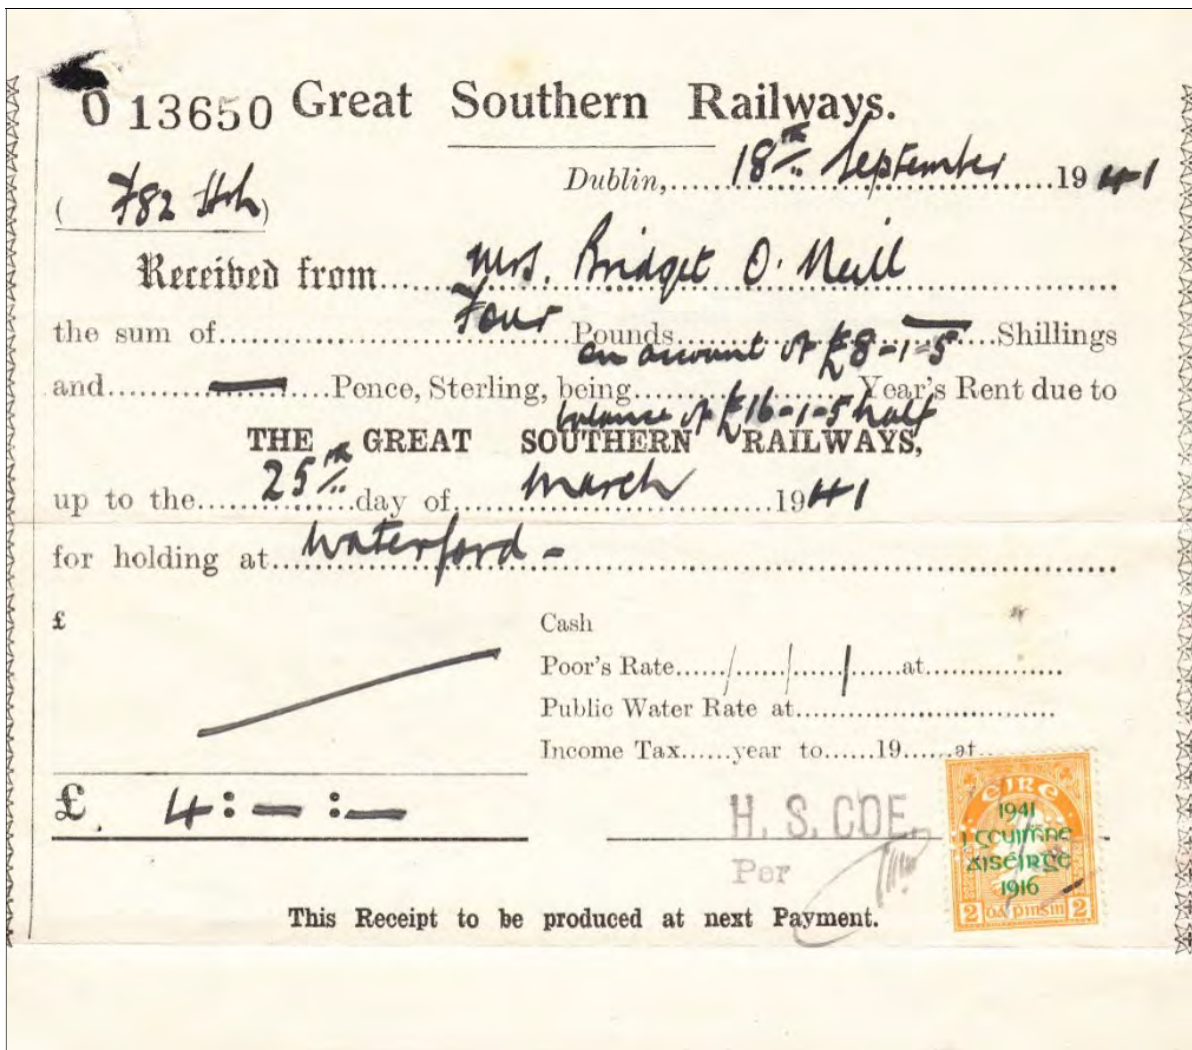 0 13650 Great Southern Railways.
Dublin, 18th September 1941
( 782 )
Received from Mrs. Bridget O'Neill
the sum of Four Pounds — Shillings
on account of £8-1-5
and — Pence, Sterling, being Year's Rent due to
balance of £16-1-5 half
THE GREAT SOUTHERN RAILWAYS,
up to the 25th day of March 1941
for holding at Waterford -
£ Cash
Poor's Rate / / / at
Public Water Rate at
Income Tax year to 19 at
£. 4:—:—
H. S. COE.
Per
ÉIRE
1941
I ᵹCUIMHNE
AISÉIRGE
1916
2 DÁ PINGIN 2
This Receipt to be produced at next Payment.